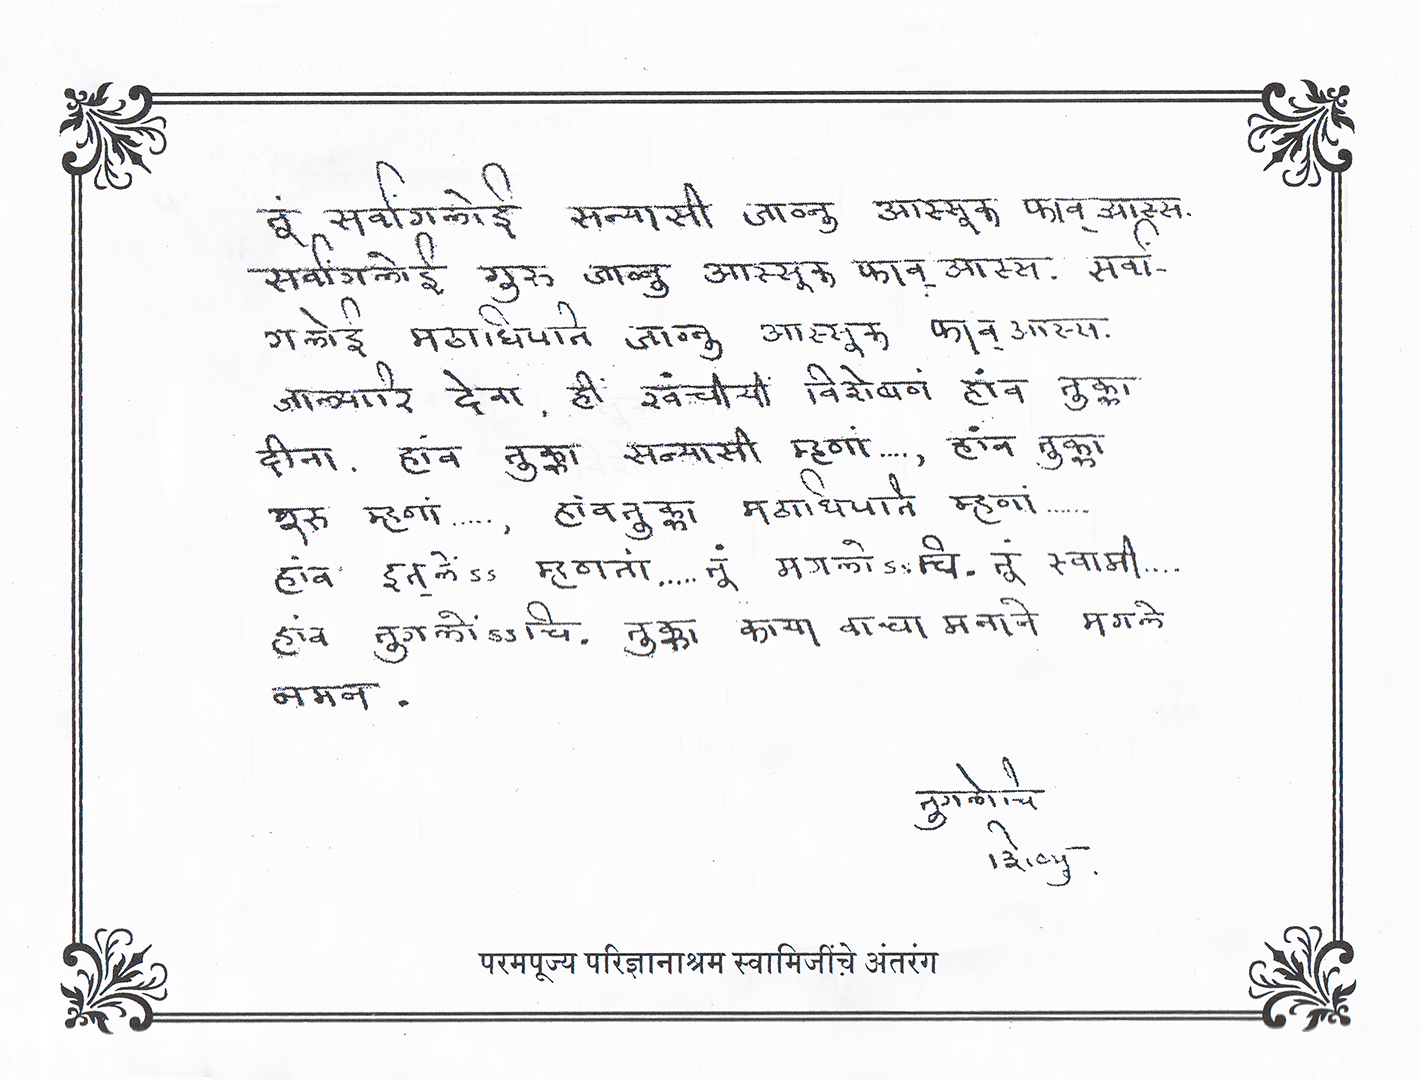 तूं सर्वांगलोई सन्यासी जाव्नु आस्सूक फाव् आस्स.
सर्वांगलोई गुरु जाव्नु आस्सूक फाव् आस्स. सर्वां-
गलोई मठाधिपति जाव्नु आस्सूक फाव् आस्स.
जाल्यारि देवा, हीं खंचींयीं विशेषणं हांव तुक्का
दीना. हांव तुक्का सन्यासी म्हणां...., हांव तुक्का
गुरु म्हणां....., हांव तुक्का मठाधिपति म्हणां......
हांव इत्लेंऽऽ म्हणतां..... तूं मगलोऽऽचि. तूं स्वामी....
हांव तुगलोंऽऽचि. तुक्का काया वाचा मनाने मगले
नमन.
तुगलोचि
शिष्यु.
परमपूज्य परिज्ञानाश्रम स्वामिजींचे अंतरंग